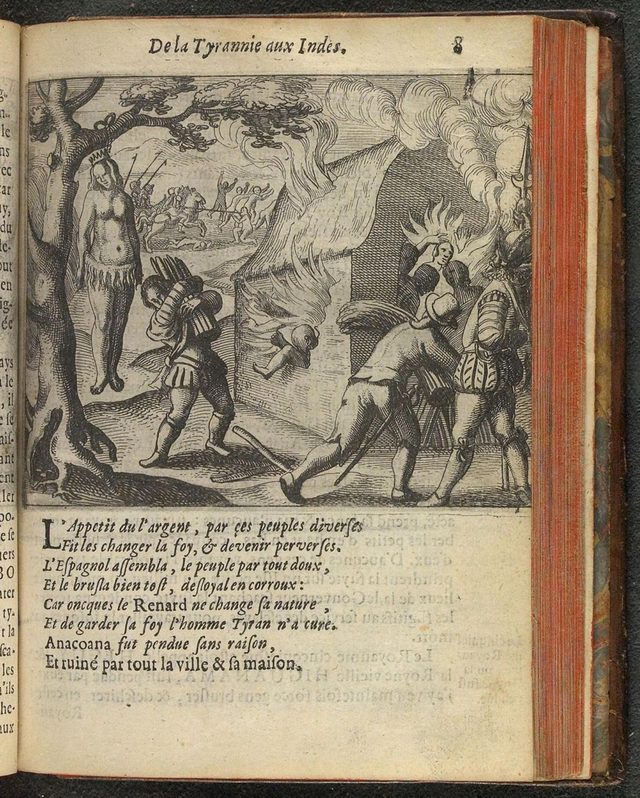 De la Tyrannie aux Indes.
8
L'Appetit du l'argent, par ces peuples diverses
Fit les changer la foy, & devenir perverses.
L'Espagnol assembla, le peuple par tout doux,
Et le brusla bien tost, desloyal en corroux:
Car oncques le Renard ne change sa nature,
Et de garder sa foy l'homme Tyran n'a cure.
Anacoana fut pendue sans raison,
Et ruiné par tout la ville & sa maison.